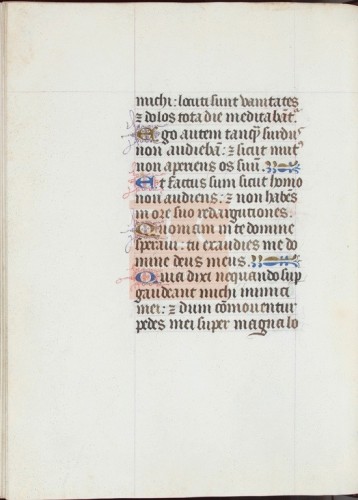 michi: locuti sunt vanitates
⁊ dolos tota die meditabāt.
Ego autem tanq̄ surdus
non audiebā: ⁊ sicut mut᷒
non aperiens os suū.
Et factus sum sicut homo
non audiens: ⁊ non habēs
in ore suo redargutiones.
Quoniam in te domine
speraui: tu exaudies me do
mine deus meus.
Quia dixi nequando sup
gaudeant michi inimici
mei: ⁊ dum cōmouentur
pedes mei super me magna lo